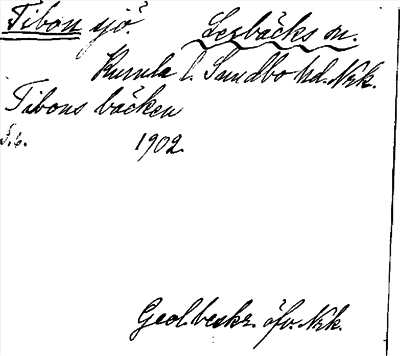 Tibon sjö. Lerbäcks sn.
Kumla l. Sundbo hd. Nrk.
Tibons bäcken
S. 6. 1902.
Geol. beskr. öfv. Nrk.